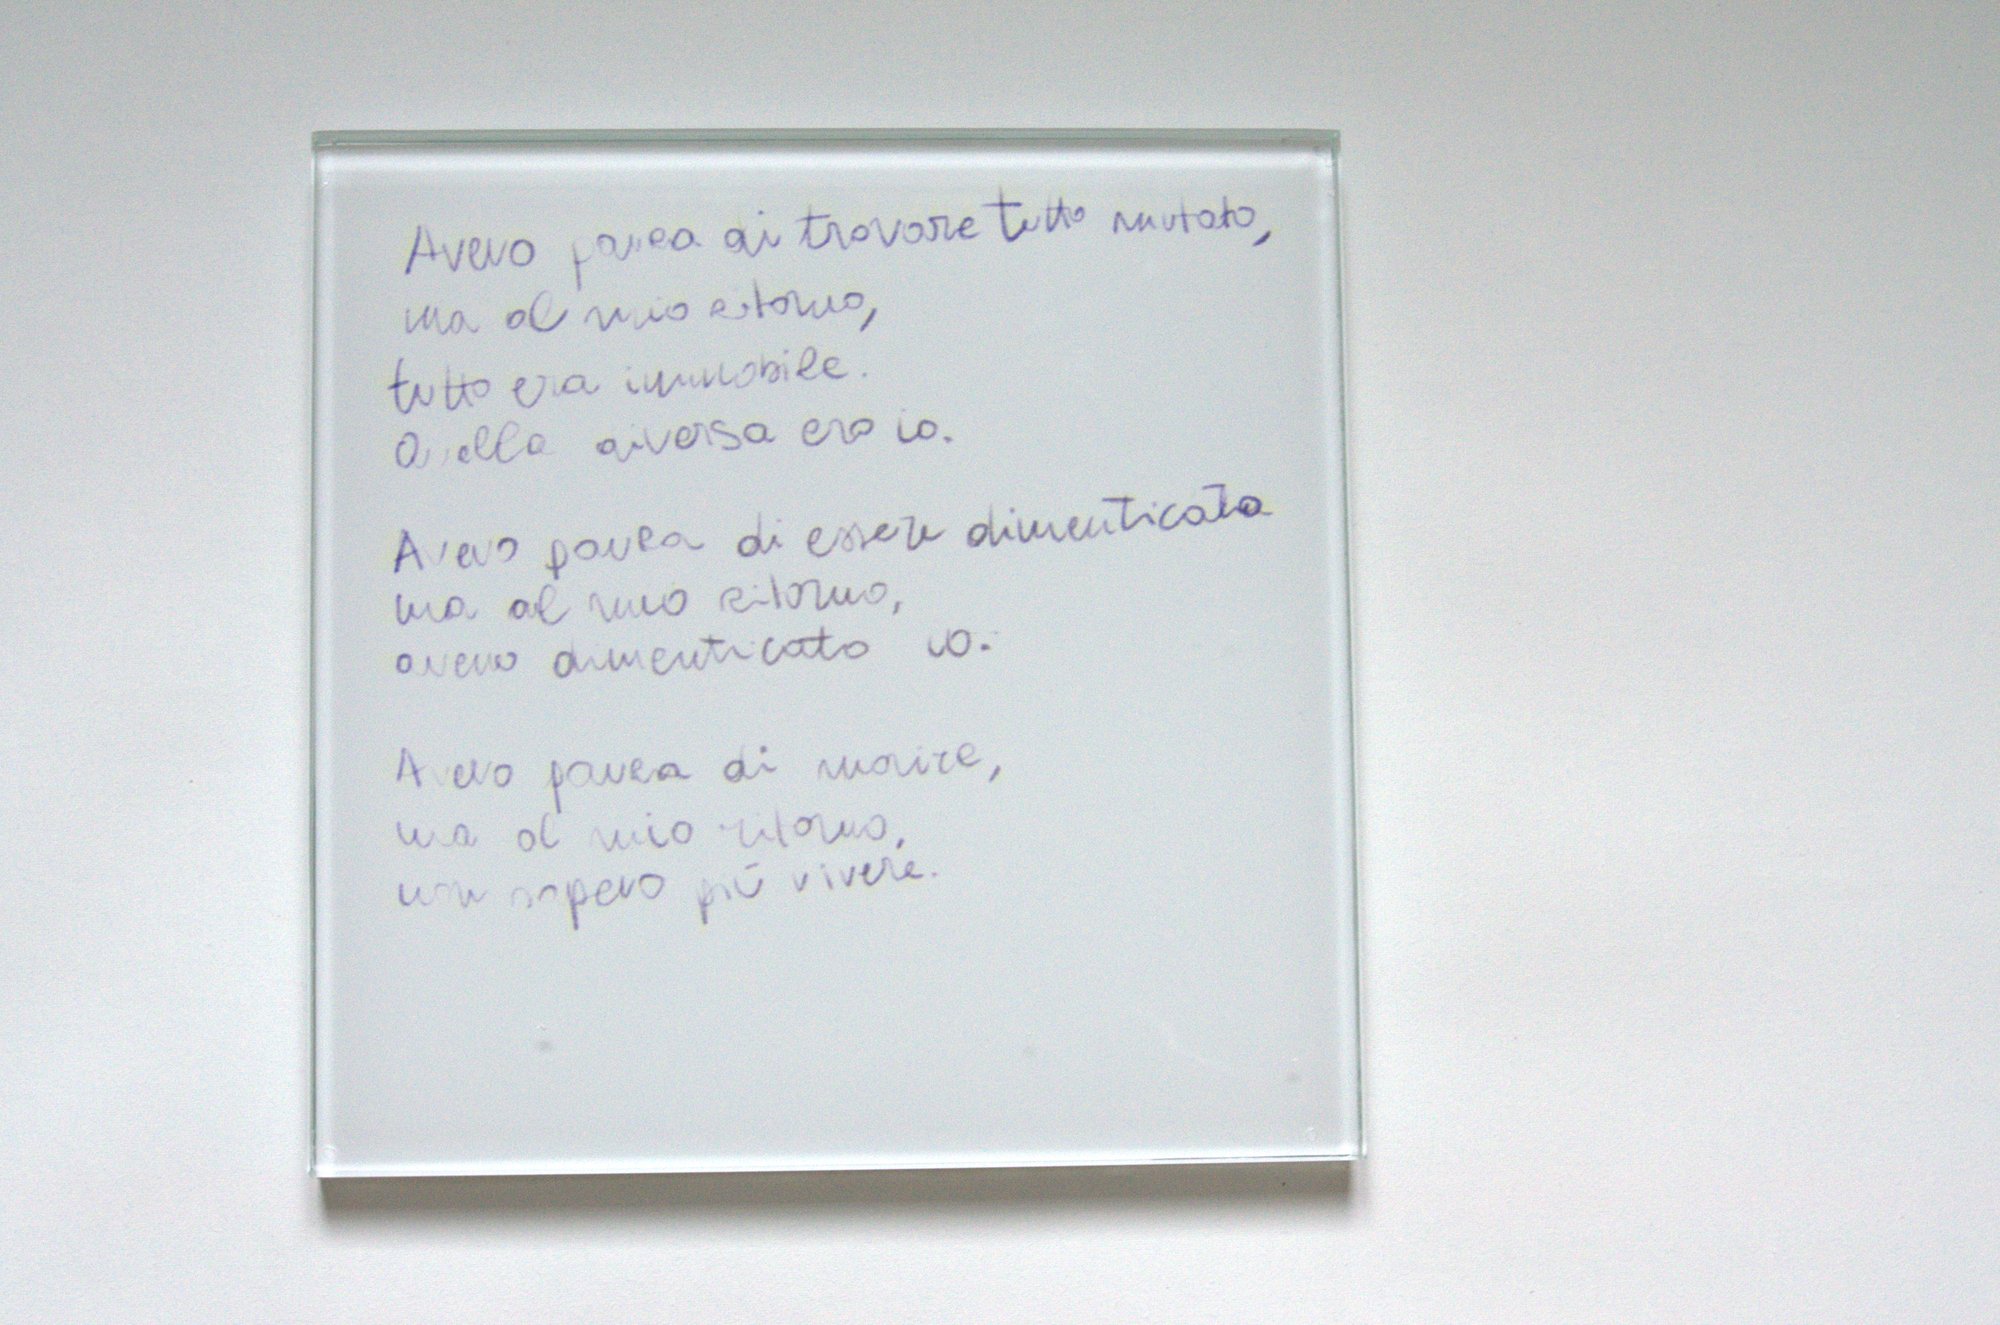 Avevo paura di trovare tutto mutato,
ma al mio ritorno,
tutto era immobile.
Quella diversa ero io.
Avevo paura di essere dimenticata
ma al mio ritorno,
avevo dimenticato io.
Avevo paura di morire,
ma al mio ritorno,
non sapevo più vivere.